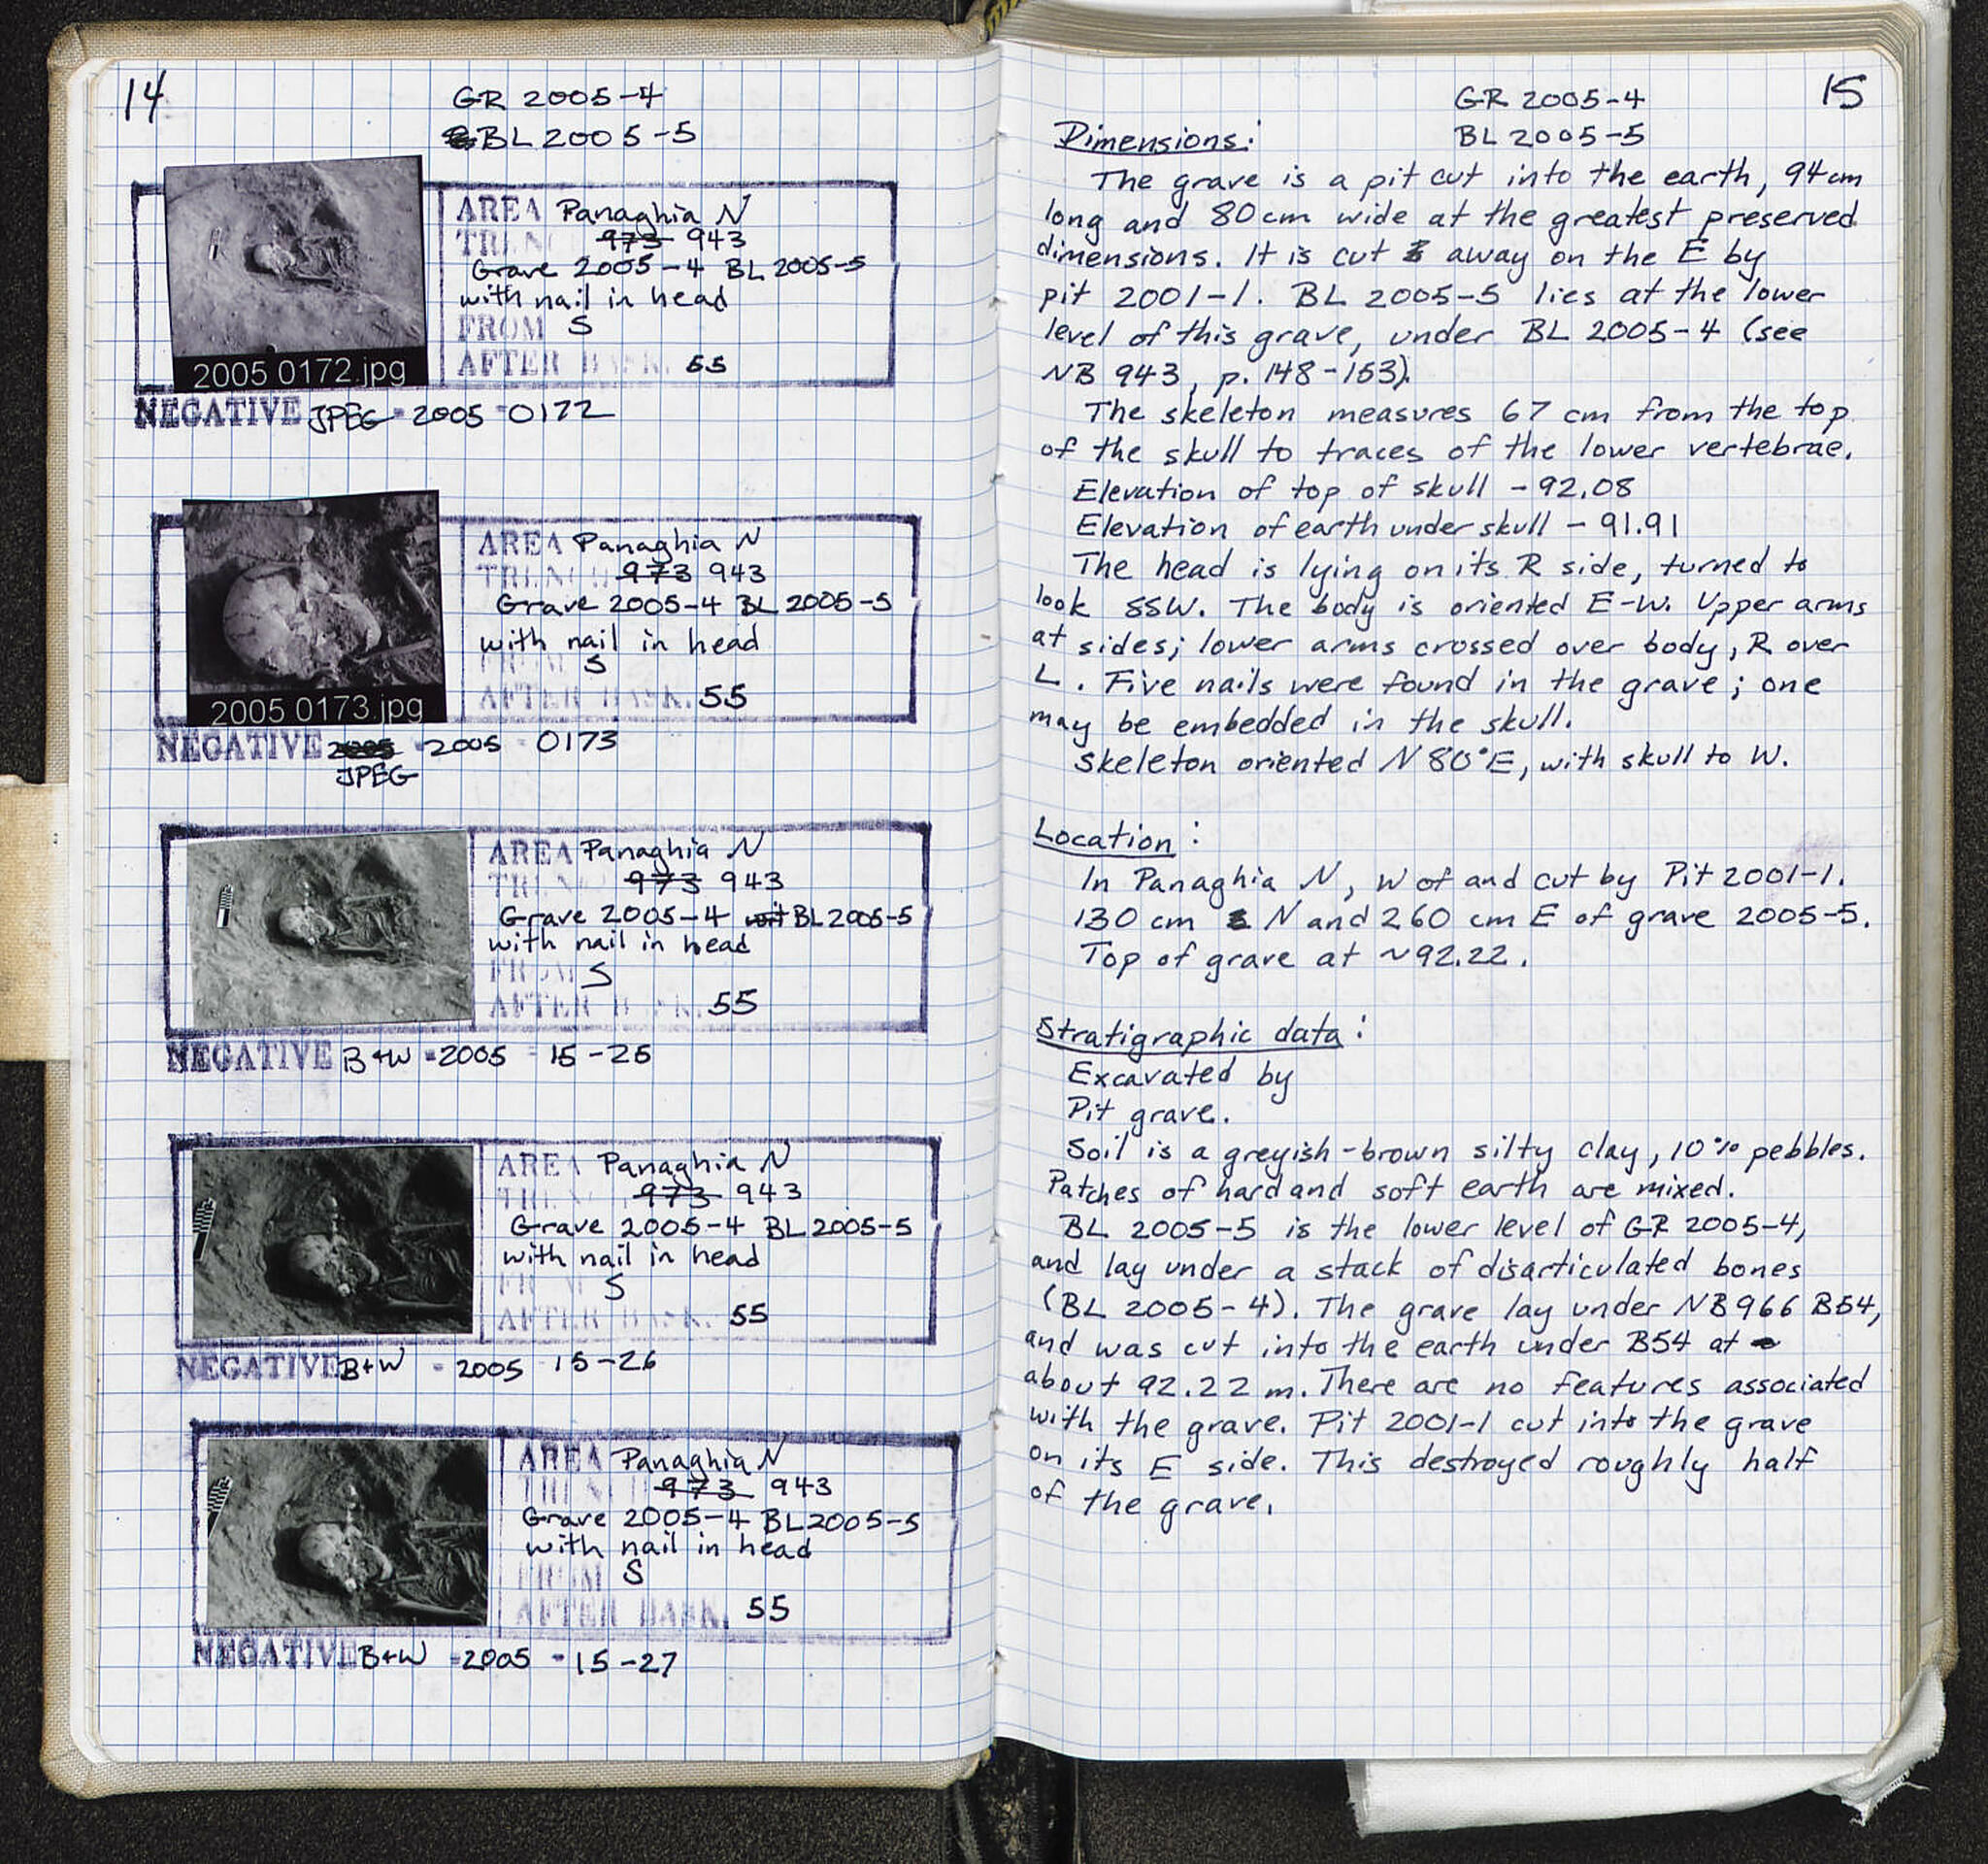 14
GR 2005-4
BL 2005-5
AREA Panaghia N
TRENCH 973 943
Grave 2005-4 BL 2005-5
with nail in head
FROM S
AFTER BASK. 55
2005 0172.jpg
NEGATIVE JPEG - 2005 - 0172
AREA Panaghia N
TRENCH 973 943
Grave 2005-4 BL 2005-5
with nail in head
FROM S
AFTER BASK. 55
2005 0173.jpg
NEGATIVE 2005 - 2005 - 0173
JPEG
AREA Panaghia N
TRENCH 973 943
Grave 2005-4 wit BL 2005-5
with nail in head
FROM S
AFTER BASK. 55
NEGATIVE B+W - 2005 - 15-25
AREA Panaghia N
TRENCH 973 943
Grave 2005-4 BL 2005-5
with nail in head
FROM S
AFTER BASK. 55
NEGATIVE B+W - 2005 15-26
AREA Panaghia N
TRENCH 973 943
Grave 2005-4 BL 2005-5
with nail in head
FROM S
AFTER BASK. 55
NEGATIVE B+W - 2005 - 15-27
15
GR 2005-4
BL 2005-5
Dimensions:
The grave is a pit cut into the earth, 94cm
long and 80cm wide at the greatest preserved
dimensions. It is cut away on the E by
pit 2001-1. BL 2005-5 lies at the lower
level of this grave, under BL 2005-4 (see
NB 943, p. 148-153).
The skeleton measures 67 cm from the top
of the skull to traces of the lower vertebrae.
Elevation of top of skull - 92.08
Elevation of earth under skull - 91.91
The head is lying on its R side, turned to
look SSW. The body is oriented E-W. Upper arms
at sides; lower arms crossed over body, R over
L. Five nails were found in the grave; one
may be embedded in the skull.
Skeleton oriented N80°E, with skull to W.
Location:
In Panaghia N, W of and cut by Pit 2001-1.
130 cm N and 260 cm E of grave 2005-5.
Top of grave at ~92.22.
Stratigraphic data:
Excavated by
Pit grave.
Soil is a greyish-brown silty clay, 10% pebbles.
Patches of hard and soft earth are mixed.
BL 2005-5 is the lower level of GR 2005-4,
and lay under a stack of disarticulated bones
(BL 2005-4). The grave lay under NB966 B54,
and was cut into the earth under B54 at
about 92.22 m. There are no features associated
with the grave. Pit 2001-1 cut into the grave
on its E side. This destroyed roughly half
of the grave.